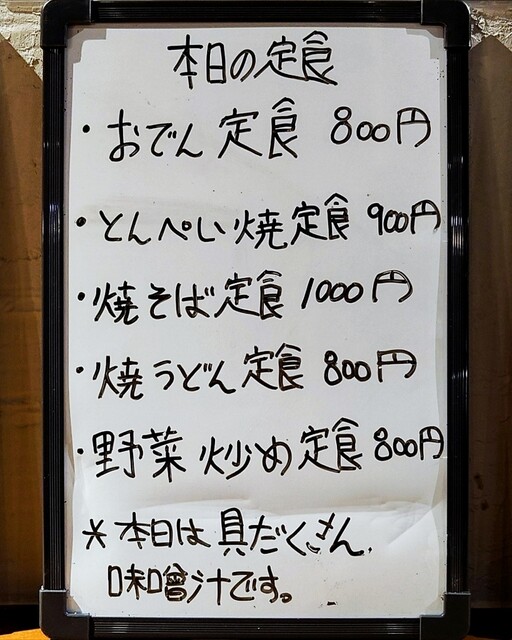 本日の定食
・おでん定食 800円
・とんぺい焼定食 900円
・焼そば定食 1000円
・焼うどん定食 800円
・野菜炒め定食 800円
＊本日は具だくさん
味噌汁です。